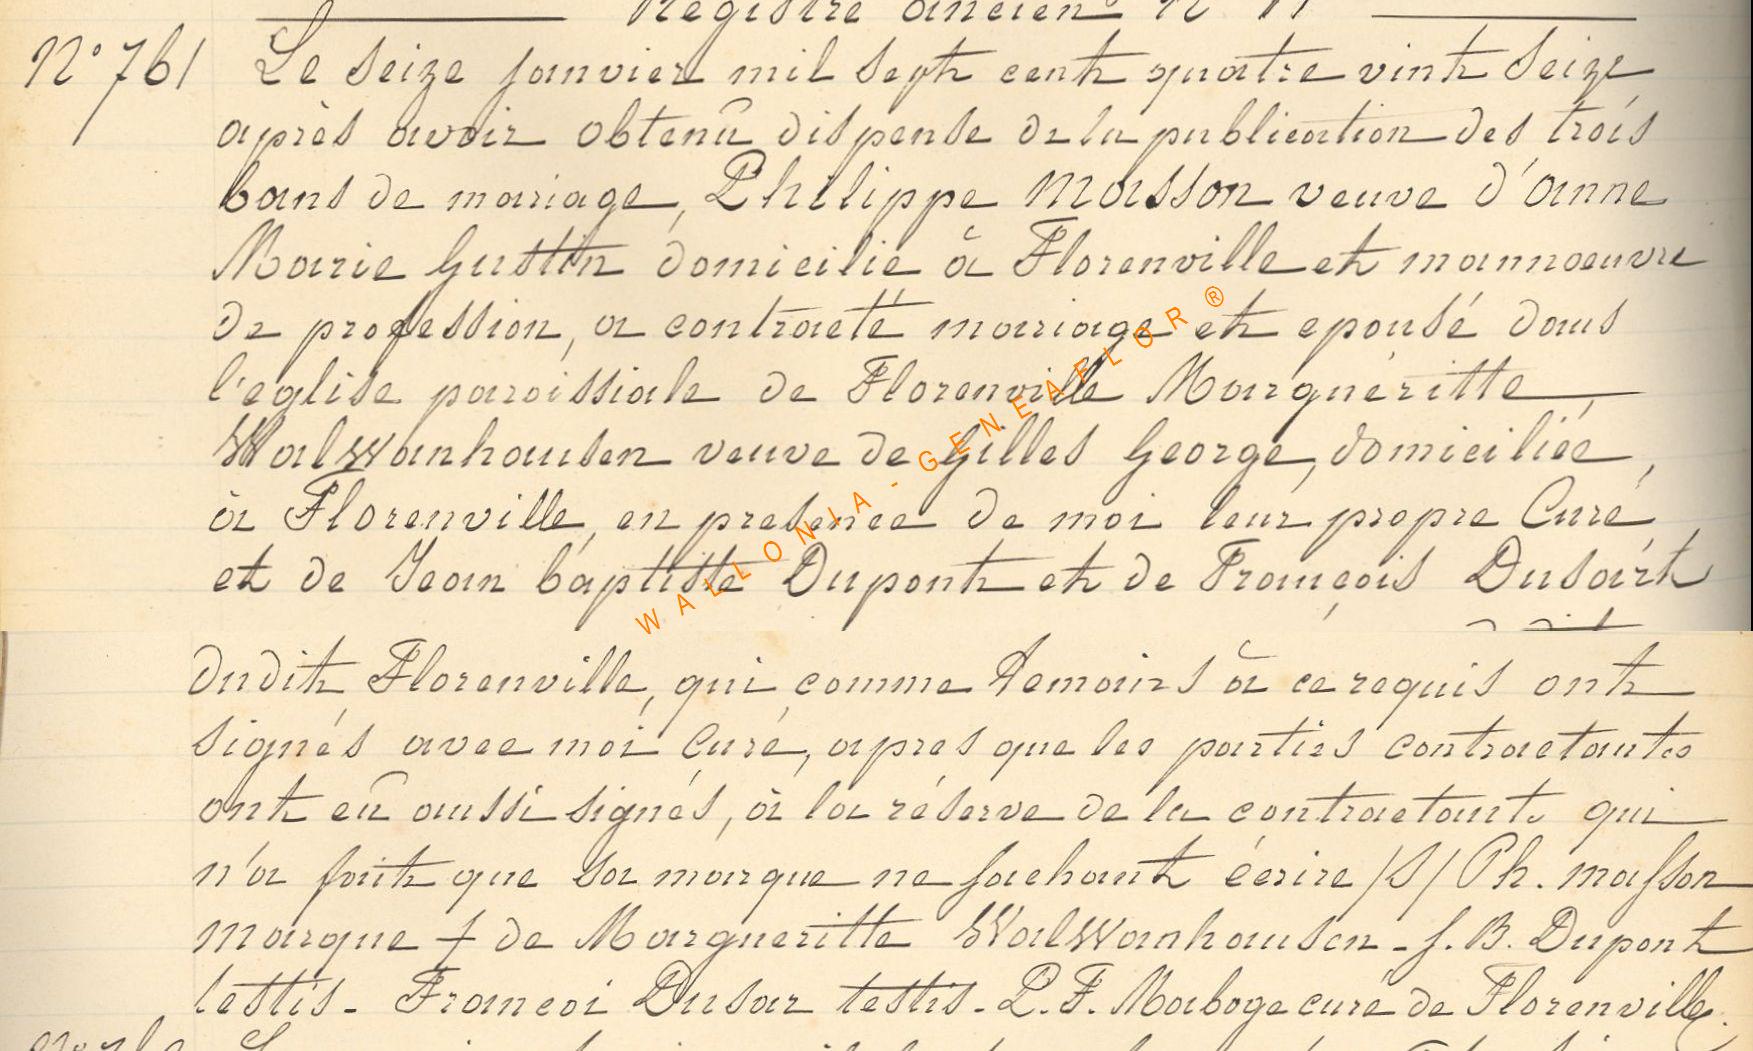 Registre ancien N° 11
N° 761 Le seize janvier mil sept cent quatre vint seize
après avoir obtenû dispense de la publication des trois
bans de mariage, Philippe Masson veuve d'anne
Marie Gustin domicilié à Florenville et mannoeuvre
de profession, a contracté mariage et epousé dans
l'eglise paroissiale de Florenville Marguéritte
Walwanhausen veuve de Gilles George, domiciliée,
à Florenville, en presence de moi leur propre Curé,
et de Jean baptiste Dupont et de François Dusart
dudit Florenville, qui comme temoins à ce requis ont
signés avec moi Curé, apres que les parties contractantes
ont eû aussi signés, à la réserve de la contractante qui
n'a fait que sa marque ne sachant écrire /S/ Ph. masson
marque + de Margueritte Walwanhausen - J. B. Dupont
testis - Francoi Dusar testis - P. F. Maboge curé de Florenville.
WALLONIA - GENEAFLOR ®